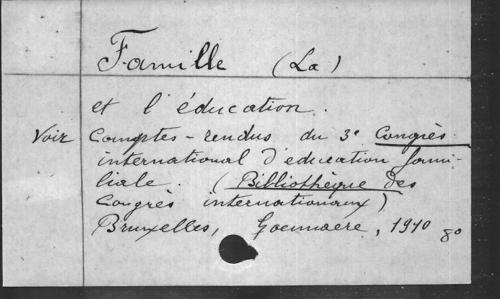 Famille (La)
et l'éducation.
Voir Comptes-rendus du 3e Congrès
international d'éducation fami-
liale. (Bibliothèque des
Congrès internationaux)
Bruxelles, Goemaere, 1910 8o